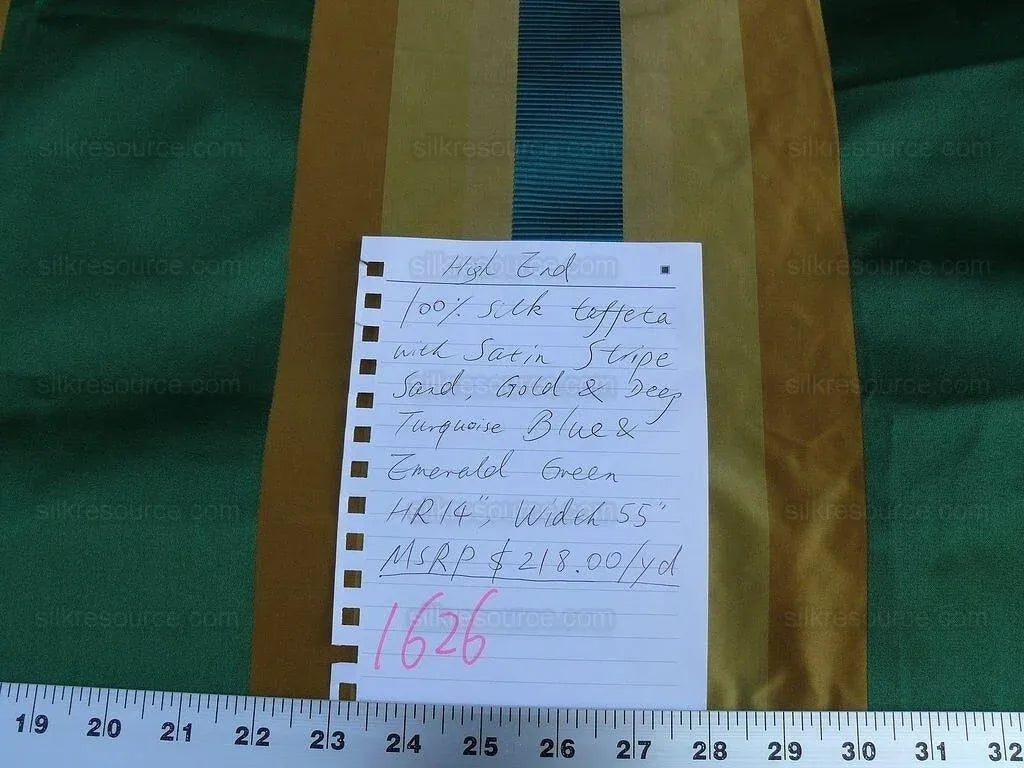 High End
100% silk taffeta
with Satin Stripe
Sand, Gold & Deep
Turquoise Blue &
Emerald Green
HR 14", Width 55"
MSRP $218.00/yd
1626
19 20 21 22 23 24 25 26 27 28 29 30 31 32
silkresource.com silkresource.com silkresource.com
silkresource.com silkresource.com silkresource.com
silkresource.com silkresource.com silkresource.com
silkresource.com silkresource.com silkresource.com
silkresource.com silkresource.com silkresource.com